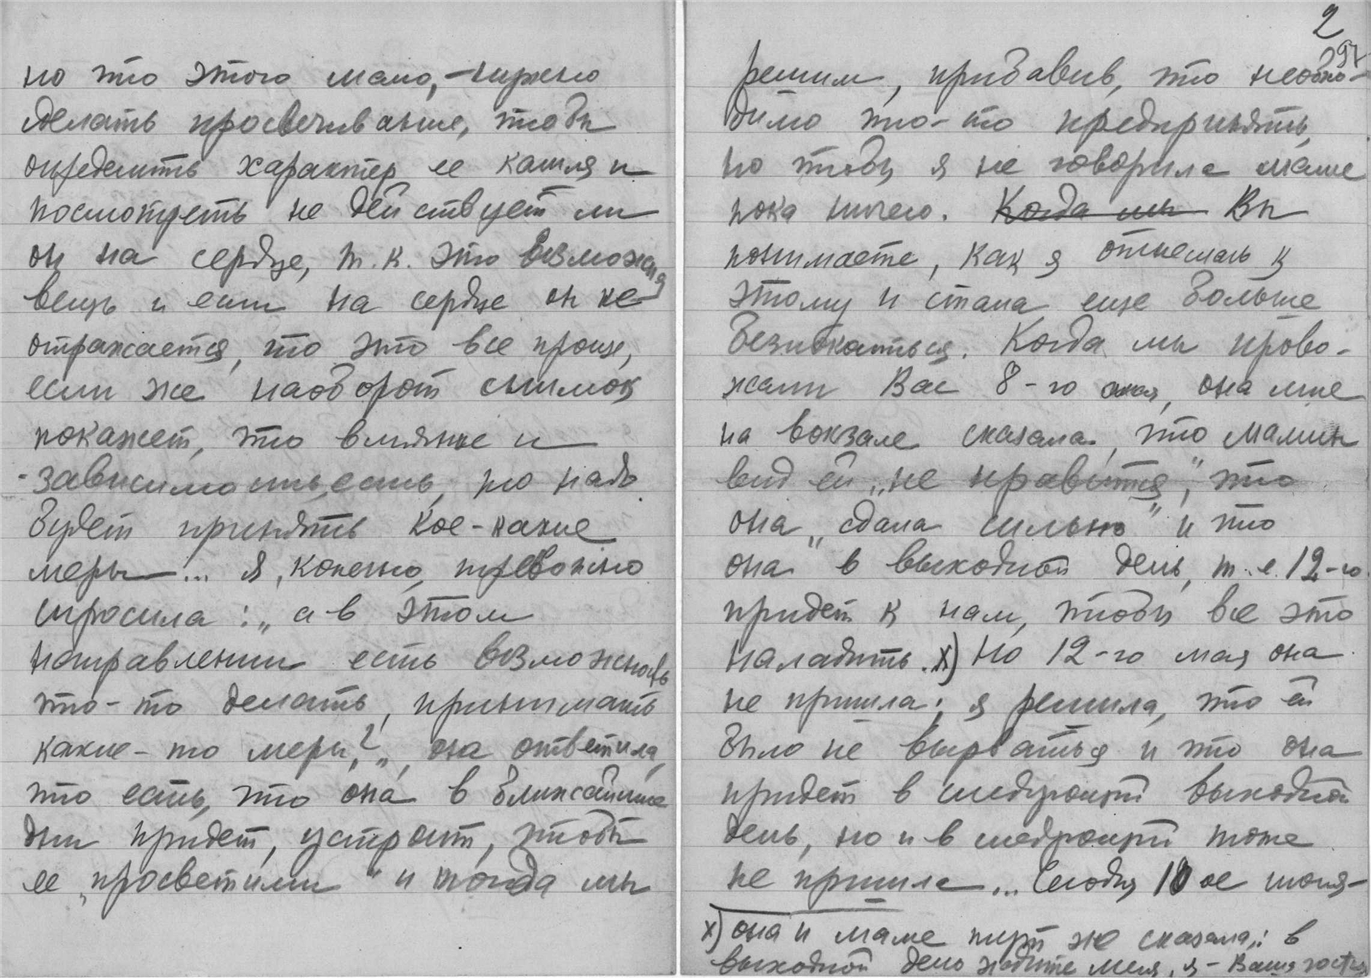 но что этого мало, – нужно
делать просвечивание, чтобы
определить характер ее кашля и
посмотреть не действует ли
он на сердце, т.к. это возможная
вещь и если на сердце он не
отражается, то это все проще,
если же наоборот снимок
покажет, что влияние и
зависимость есть, то надо
будет принять кое-какие
меры... Я, конечно, тревожно
спросила: „а в этом
направлении есть возможность
что-то делать, принимать
какие-то меры?", она ответила,
что есть, что она в ближайшие
дни придет, устроит, чтобы
ее „просветили" и тогда мы
2
решим, прибавив, что необхо-
димо что-то предпринять,
но чтобы я не говорила маме
пока ничего. Когда мы Вы
понимаете, как я отнеслась к
этому и стала еще больше
безпокоиться. Когда мы прово-
жали Вас 8-го мая, она мне
на вокзале сказала, что мамин
вид ей „не нравится", что
она „сдала сильно" и что
она в выходной день, т.е. 12-го
придет к нам, чтобы все это
наладить. х) Но 12-го мая она
не пришла; я решила, что ей
было не вырваться и что она
придет в следующий выходной
день, но и в следующий тоже
не пришла... Сегодня 10 ое июня –
х) она и маме тут же сказала: в
выходной день ждите меня, я – Ваша гостья